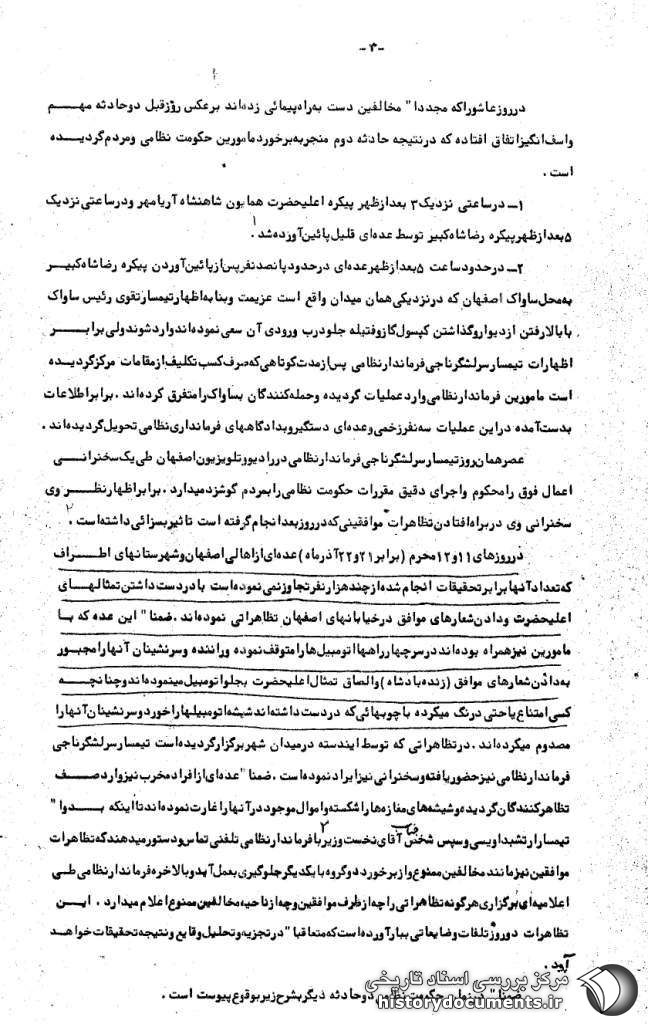 -۳-
در روز عاشورا که مجددا" مخالفین دست به راه پیمائی زده‌اند برعکس روز قبل دو حادثه مهـــم
و اسف انگیز اتفاق افتاده که در نتیجه حادثه دوم منجر به برخورد مامورین حکومت نظامی و مردم گردیـــده
است .
۱ــ در ساعتی نزدیک ۳ بعد از ظهر پیکره اعلیحضرت همایون شاهنشاه آریامهر و در ساعتی نزدیک
۵ بعد از ظهر پیکره رضا شاه کبیر توسط عده‌ای قلیل پائین آورده شد .
۲ــ در حدود ساعت ۵ بعد از ظهر عده‌ای در حدود پانصد نفر پس از پائین آوردن پیکره رضا شاه کبیــر
به محل ساواک اصفهان که در نزدیکی همان میدان واقع است عزیمت و بنا به اظهار تیمسار تقوی رئیس ساواک
با بالا رفتن از دیوار و گذاشتن کپسول گاز و فتیله جلو درب ورودی آن سعی نموده‌اند وارد شوند ولی برابــر
اظهارات تیمسار سرلشگر ناجی فرماندار نظامی پس از مدت کوتاهی که صرف کسب تکلیف از مقامات مرکز گردیـده
است مامورین فرماندار نظامی وارد عملیات گردیده و حمله کنندگان بساواک را متفرق کرده‌اند . برابر اطلاعات
بدست آمده در این عملیات سه نفر زخمی و عده‌ای دستگیر و بدادگاههای فرمانداری نظامی تحویل گردیده‌اند .
عصر همان روز تیمسار سرلشگر ناجی فرماندار نظامی در رادیو و تلویزیون اصفهان طی یک سخنرانـــی
اعمال فوق را محکوم و اجرای دقیق مقررات حکومت نظامی را بمردم گوشزد میدارد . برابر اظهار نظـــر وی
سخنرانی وی در براه افتادن تظاهرات موافقینی که در روز بعد انجام گرفته است تاثیر بسزائی داشته است .
در روزهای ۱۱ و ۱۲ محرم (برابر ۲۱ و ۲۲ آذرماه) عده‌ای از اهالی اصفهان و شهرستانهای اطـــراف
که تعداد آنها برابر تحقیقات انجام شده از چند هزار نفر تجاوز نمی نموده است با در دست داشتن تمثالهـای
اعلیحضرت و دادن شعارهای موافق در خیابانهای اصفهان تظاهراتی نموده‌اند . ضمنا" این عده که بــا
مامورین نیز همراه بوده‌اند در سر چهارراهها اتومبیل‌ها را متوقف نموده و راننده و سرنشینان آنها را مجبــور
به دادن شعارهای موافق (زنده باد شاه) و الصاق تمثال اعلیحضرت بجلو اتومبیل مینموده‌اند و چنانچــه
کسی امتناع یا حتی درنگ میکرده با چوبهائی که در دست داشته‌اند شیشه اتومبیلها را خورد و سرنشینان آنها را
مصدوم میکرده‌اند . در تظاهراتی که توسط این دسته در میدان شهر برگزار گردیده است تیمسار سرلشگر ناجی
فرماندار نظامی نیز حضور یافته و سخنرانی نیز ایراد نموده است . ضمنا" عده‌ای از افراد مخرب نیز وارد صـــف
تظاهر کنندگان گردیده و شیشه‌های مغازه‌ها را شکسته و اموال موجود در آنها را غارت نموده‌اند تا اینکه بـدوا"
تیمسار ارتشبد اویسی و سپس شخص جناب آقای نخست وزیر با فرماندار نظامی تلفنی تماس و دستور میدهند که تظاهرات
موافقین نیز مانند مخالفین ممنوع و از برخورد دو گروه با یکدیگر جلوگیری بعمل آید و بالاخره فرماندار نظامی طـی
اعلامیه‌ای برگزاری هرگونه تظاهراتی را چه از طرف موافقین و چه از ناحیه مخالفین ممنوع اعلام میدارد . ایــن
تظاهرات دو روزه تلفات و ضایعاتی ببار آورده است که متعاقبا" در تجزیه و تحلیل وقایع و نتیجه تحقیقات خواهـد
آمد .
ضمنا" حکومت نظامی دو حادثه دیگر بشرح زیر بوقوع پیوست است .
مرکز بررسی اسناد تاریخی
historydocuments.ir